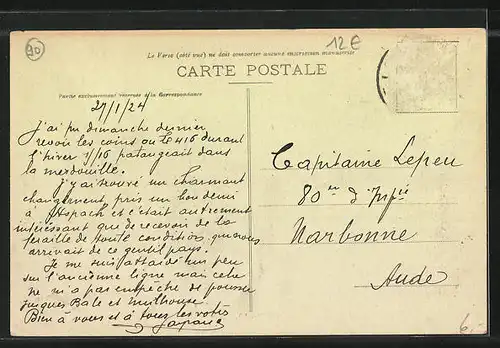 90
12€
Le Verso (côté vue) ne doit comporter aucune inscription manuscrite
CARTE POSTALE
Partie exclusivement réservée à la Correspondance
27/1/24
J'ai pu dimanche dernier
revoir les coins où le 416 durant
l'hiver 1/16 pataugeait dans
la merdouille.
J'y ai trouvé un charmant
changement, pris un bon demi
à Aspach et c'était autrement
intéressant que de recevoir de la
feraille de toute condition qui nous
arrivait de ce gentil pays.
Je me suis attardé un peu
sur l'ancienne ligne mais cela
ne m'a pas empêché de pousser
jusques Bale et Mulhouse.
Bien à vous et à tous les vôtres
Capitaine Lepeu
80em d'Infie
Narbonne
Aude
6,-